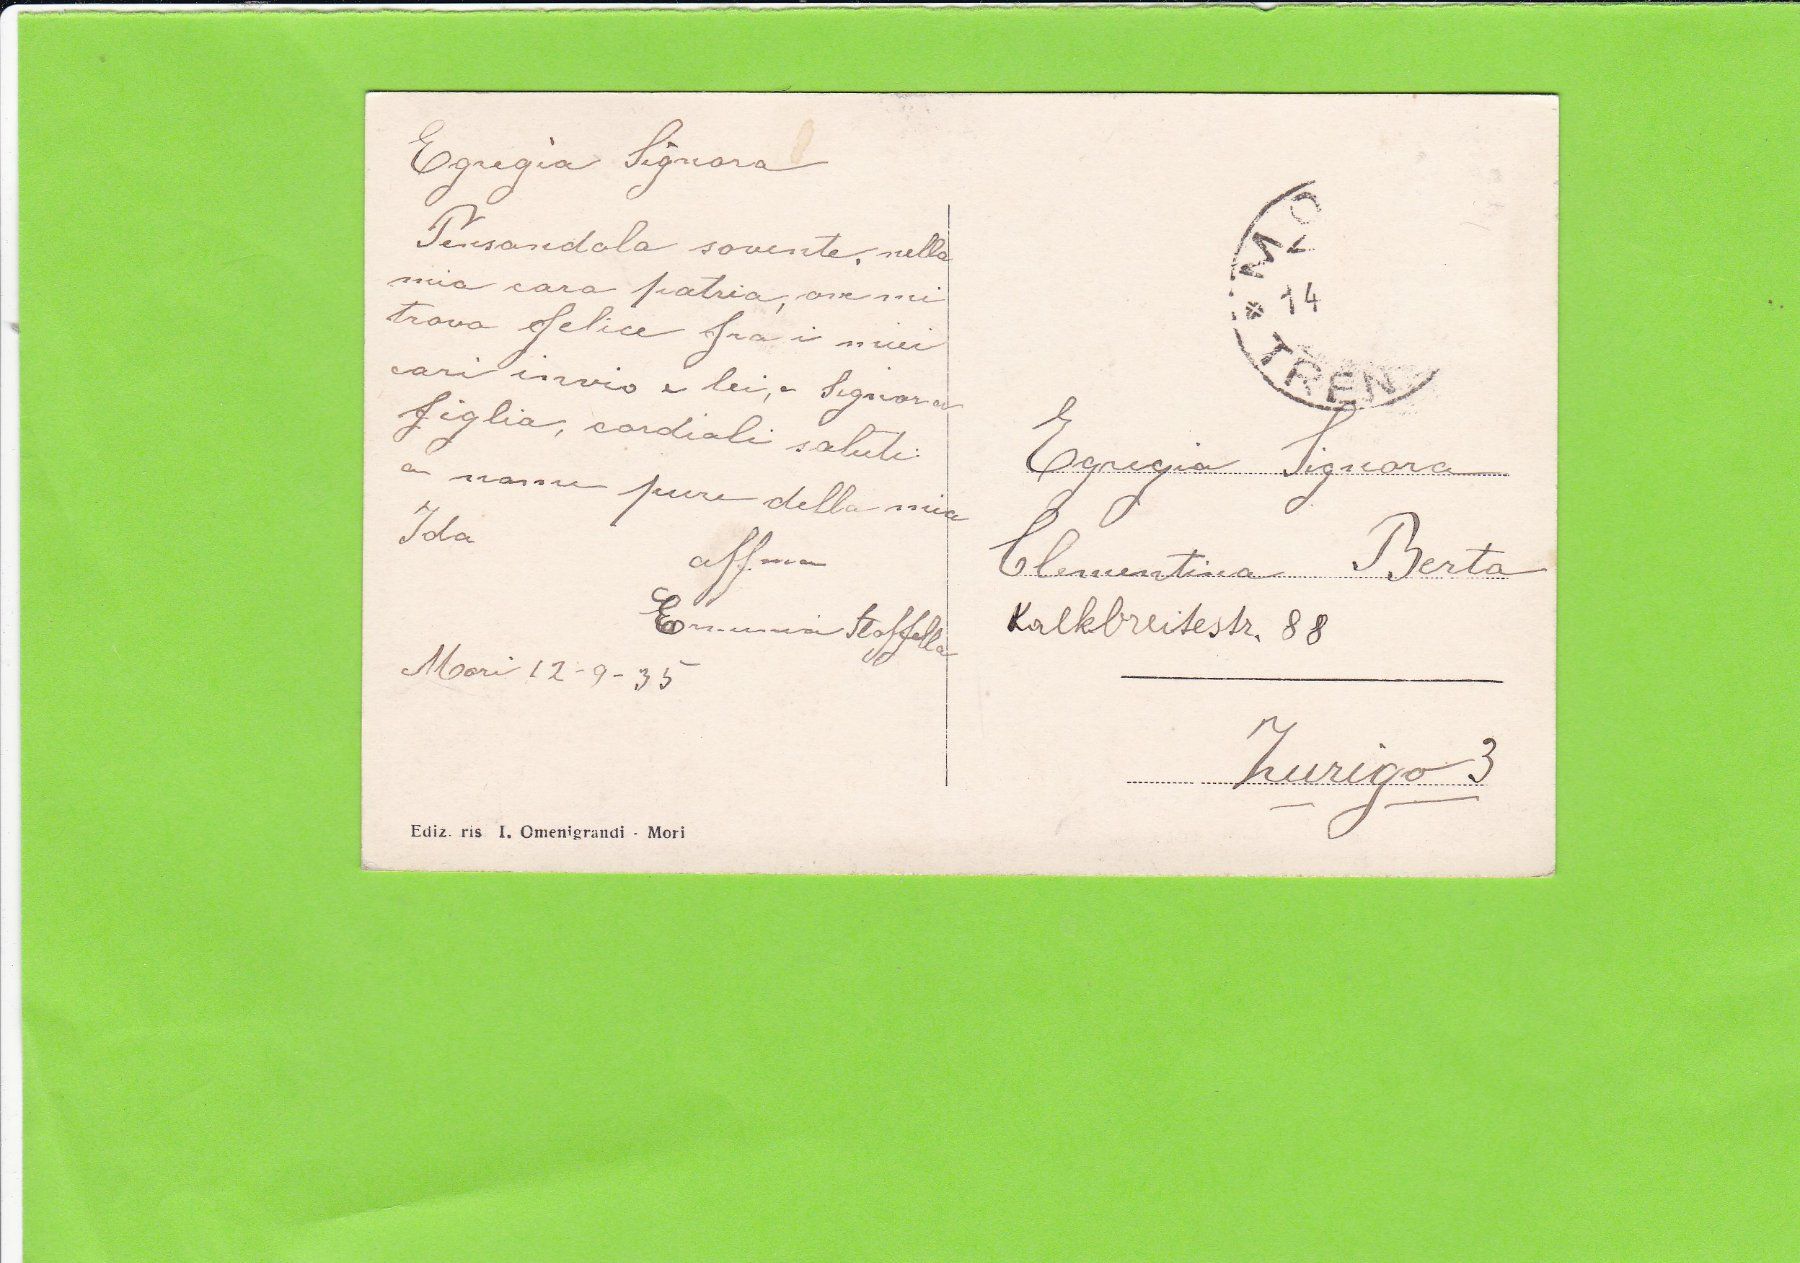 Egregia Signora
Pensandola sovente, nella
mia cara patria, ove mi
trovo felice fra i miei
cari invio a lei, e Signora
figlia, cordiali saluti
a nome pure della mia
Ida
affma
Emma
Mori 12-9-35
Ediz. ris I. Omenigrandi - Mori
MO
14
TREN
Egregia Signora
Clementina Berta
Kalkbreitestr. 88
Zurigo 3